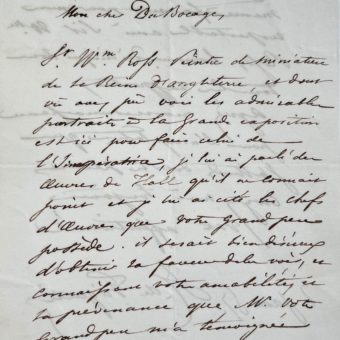 Mon cher Du Bocage,
Sr. Wm Ross Peintre de miniature
de la Reine d'angleterre, et dont
vû les admirables
portraits à la Grande exposition
est ici pour faire celui de
l'Impératrice, j'lui ai parlé des
Œuvres de Hall qu'il ne connait
point et j'lui ai cité les chefs
d'Œuvres que votre Grand père
possède. il serait bien désireux
d'obtenir la faveur de les voir, et
connaissant votre amabilité, et
la prévenance que Mr. Votre
Grand père m'a témoignée